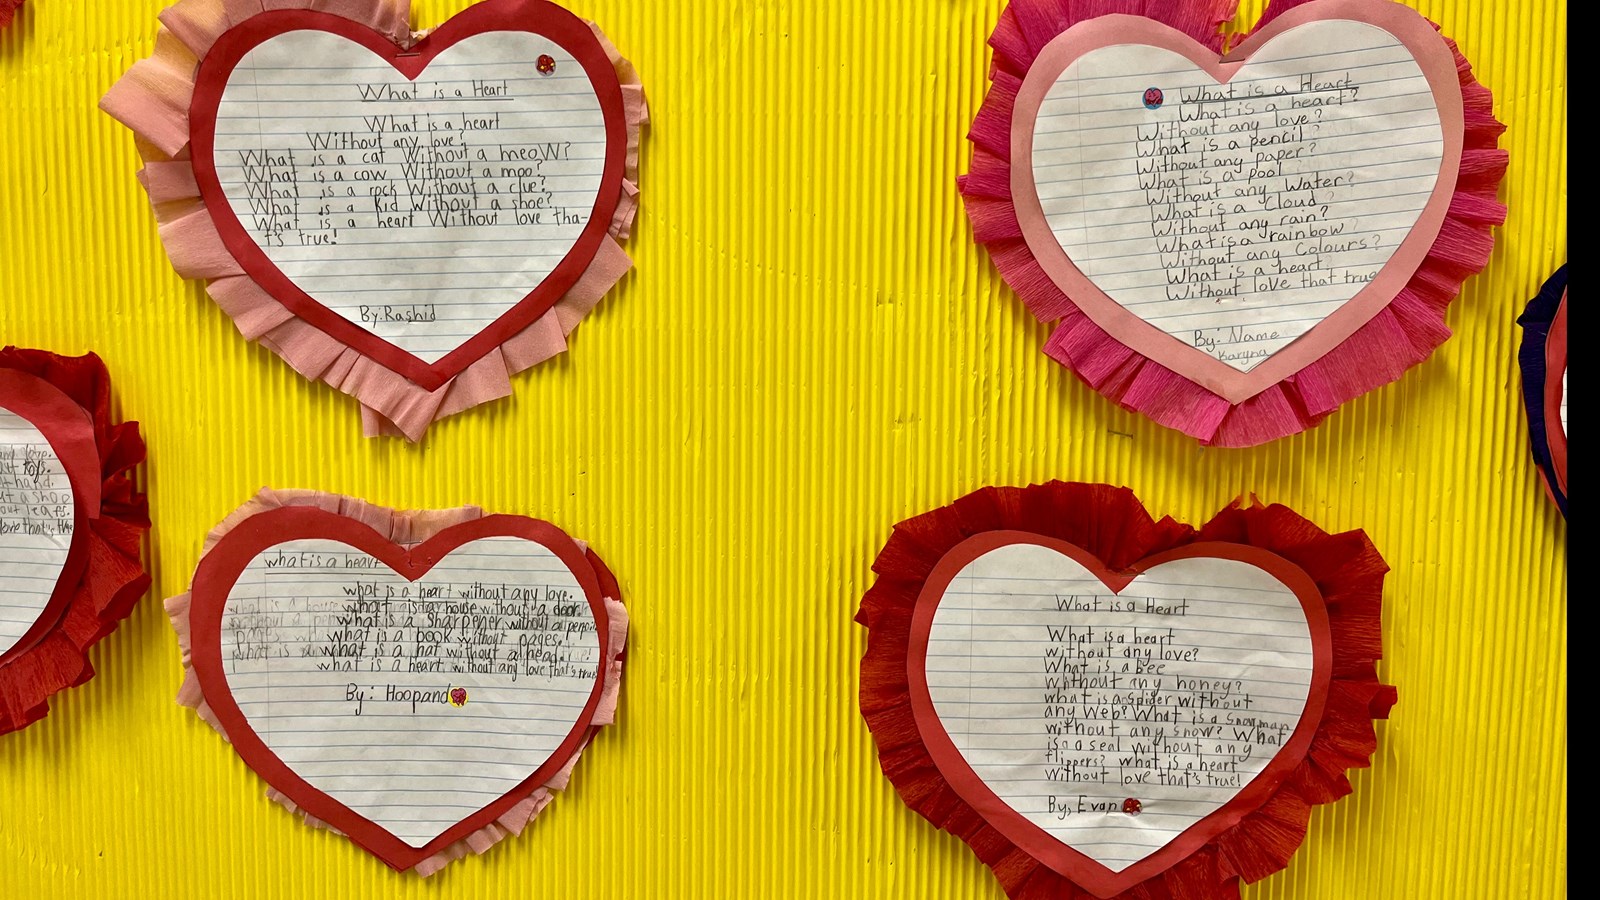 What is a Heart
What is a heart
Without any love?
What is a cat Without a meow?
What is a cow Without a moo?
What is a rock Without a clue?
What is a kid Without a shoe?
What is a heart Without love tha-
t's true!
By: Rashid
What is a Heart
What is a heart?
Without any love?
What is a pencil?
Without any Paper?
What is a Pool
Without any Water?
What is a cloud
Without any rain?
What is a rainbow
Without any Colours?
What is a heart
Without love that true
By: Name
Karyna
and love.
toys.
hand.
ut a shoe
out leafs.
love that's true
what is a heart
what is a heart without any love.
what is a house without a door.
what is a sharpener without a pencil
what is a book without pages.
what is a hat without a head.
what is a heart without any love that's true
By: Hoopand
What is a Heart
What is a heart
without any love?
What is a bee
Without any honey?
what is a spider without
any Web? What is a snowman
without any snow? What
is a seal without any
flippers? what is a heart
Without love that's true!
By, Evan